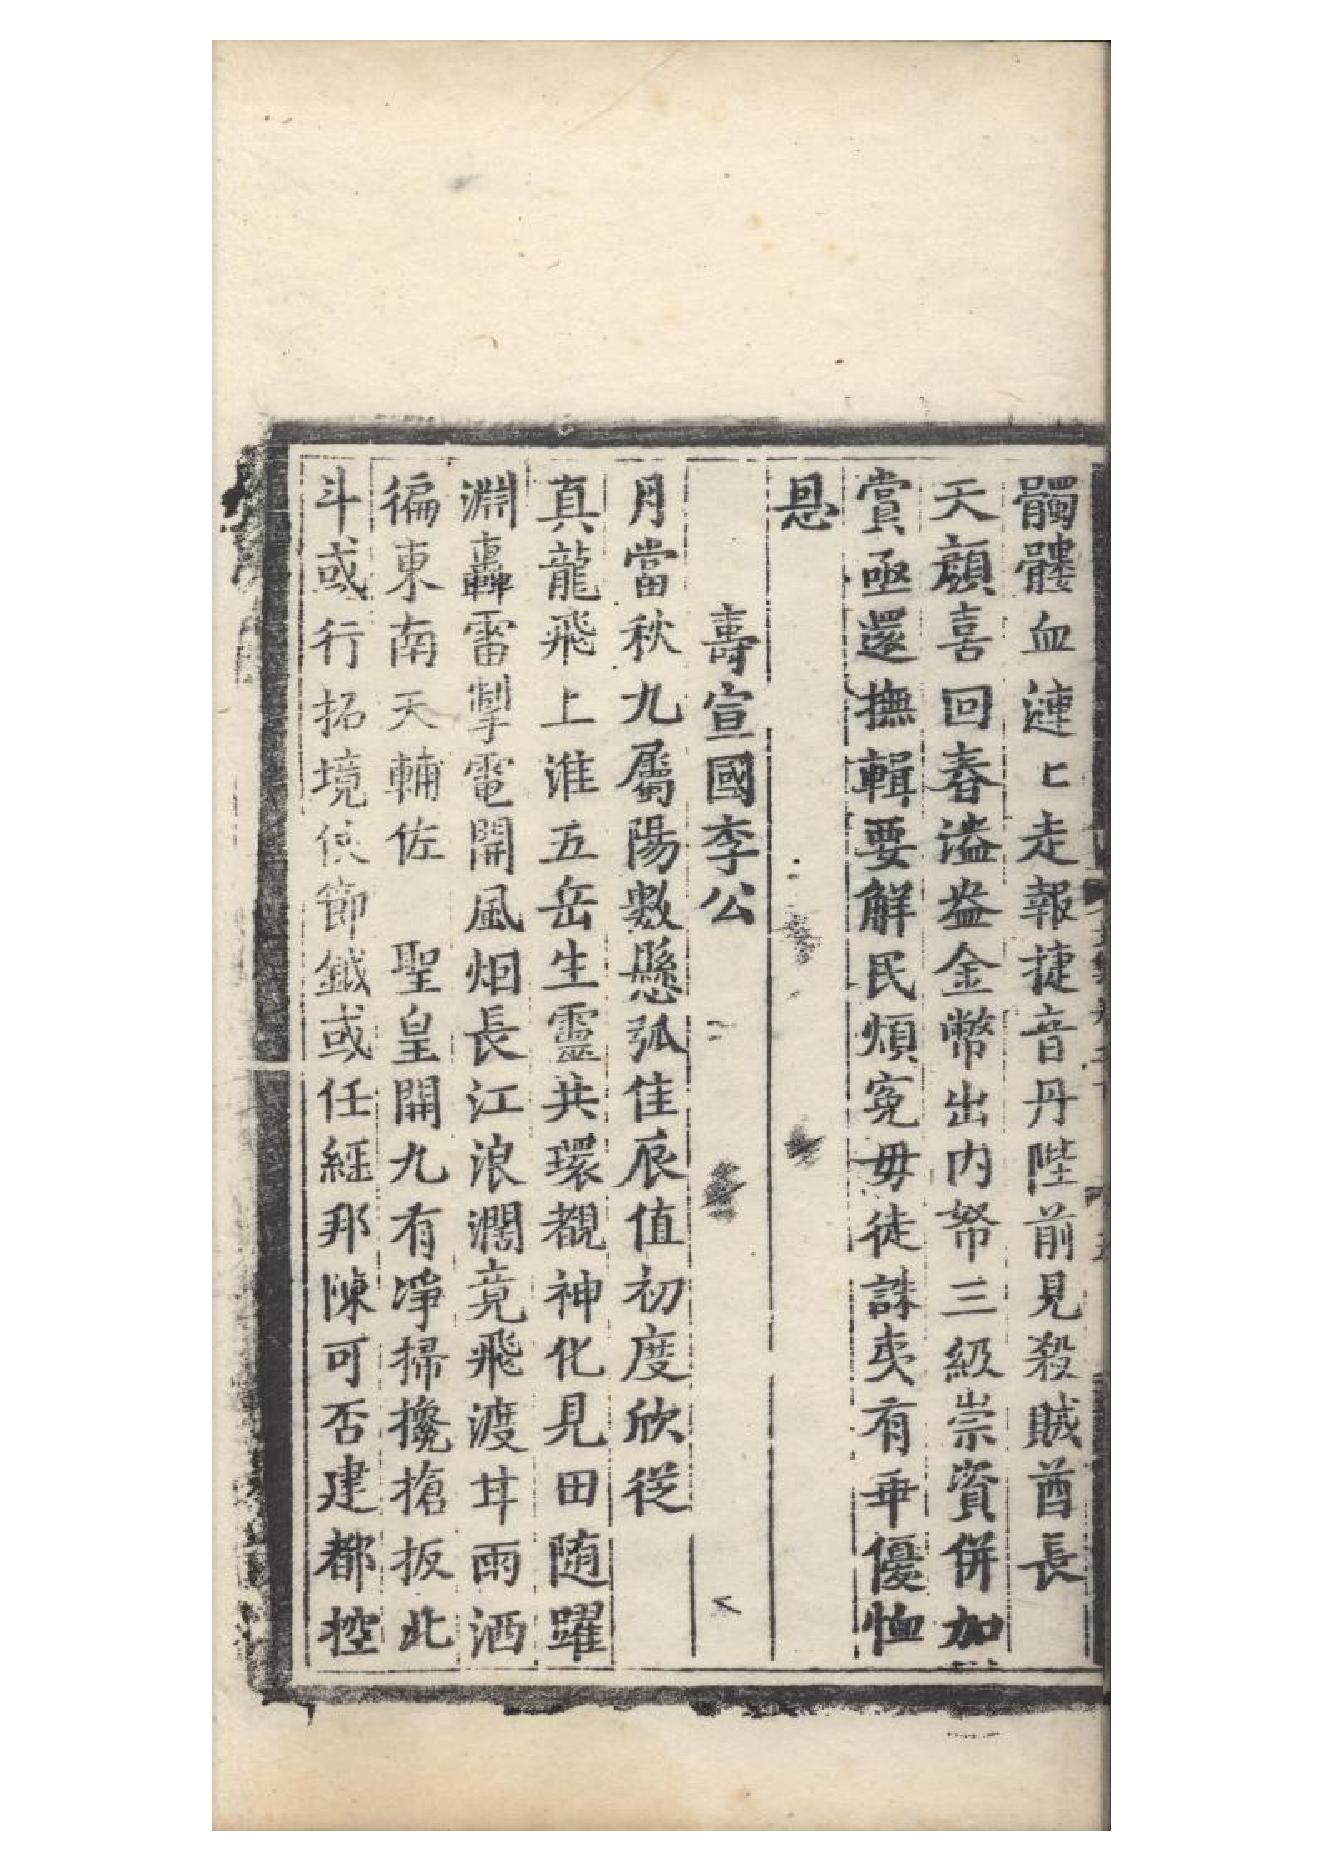 髑髏血漣〻走報捷音丹陛前見殺賊酋長
天顏喜回春溢盎金幣出内帑三級崇資併加
賞亟還撫輯要解民煩寃毋徒誅夷有乖優恤
恩
壽宣國李公
月當秋九屬陽數懸弧佳辰值初度欣從
真龍飛上淮五岳生靈共環覩神化見田随躍
淵轟雷掣電開風烟長江浪濶竟飛渡甘雨洒
徧東南天輔佐　聖皇開九有淨掃攙搶扳此
斗或行拓境使節鉞或任經邦陳可否建都控